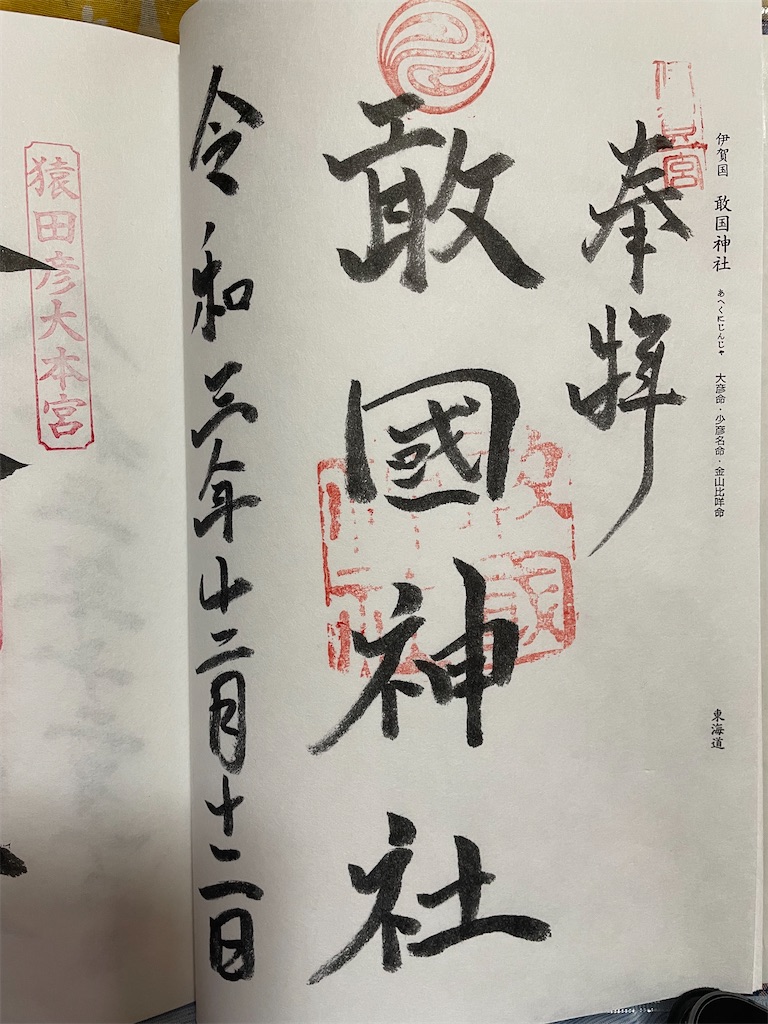 伊賀国 敢国神社 あへくにじんじゃ 大彦命・少彦名命・金山比咩命 東海道
奉拝
敢國神社
令和三年十二月十二日
猿田彦大本宮